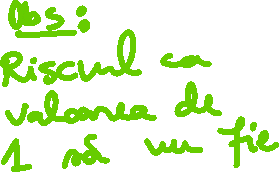 Obs:
Riscul ca
valoarea de
1 să nu fie